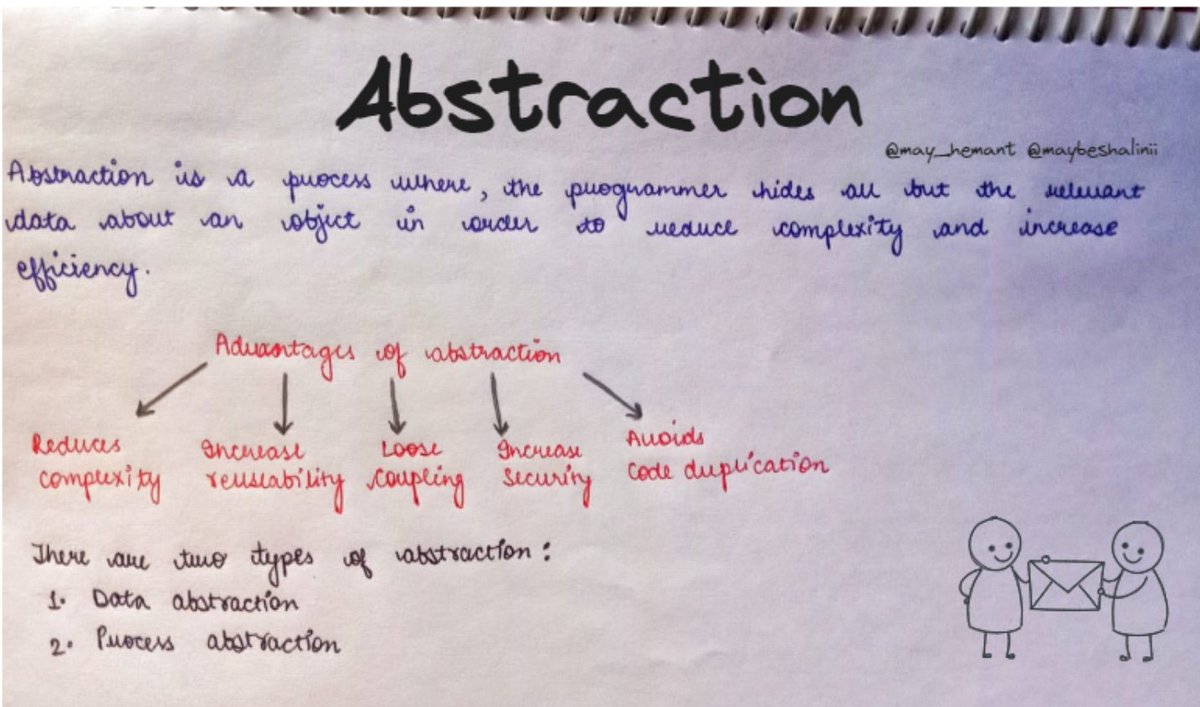 Abstraction
@may_hemant @maybeshalinii
Abstraction is a process where, the programmer hides all but the relevant
data about an object in order to reduce complexity and increase
efficiency.
Advantages of abstraction
Reduces complexity
Increase reuseability
Loose coupling
Increase Security
Avoids code duplication
There are two types of abstraction :
1. Data abstraction
2. Process abstraction